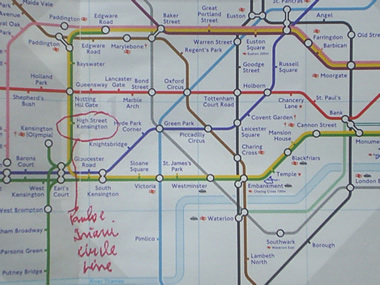 Maida Vale
Paddington
Edgware
Road
Baker
Street
Great
Portland
Street
Euston
St. Pancras
Angel
Old
Paddington
Edgware
Road
Marylebone
Warren Street
Regent's Park
Euston
Square
Farringdon
Barbican
Bayswater
Goodge
Street
Russell
Square
Moorgate
Holland
Park
Lancaster
Gate
Bond
Street
Oxford
Circus
Queensway
Holborn
Shepherd's
Bush
Notting
Hill Gate
Marble
Arch
Tottenham
Court Road
Chancery
Lane
St. Paul's
Bank
High Street
Kensington
Hyde Park
Corner
Green Park
Covent Garden
Cannon Street
Kensington
(Olympia)
Piccadilly
Circus
Leicester
Square
Mansion
House
Monument
Knightsbridge
Barons
Court
Gloucester
Road
Sloane
Square
St. James's
Park
Charing
Cross
Blackfriars
Temple
West
Kensington
Earl's
Court
South
Kensington
Victoria
Westminster
Embankment
London
West Brompton
Waterloo
Fulham Broadway
Pimlico
Southwark
Borough
Parsons Green
Lambeth
North
Putney Bridge
circle
line